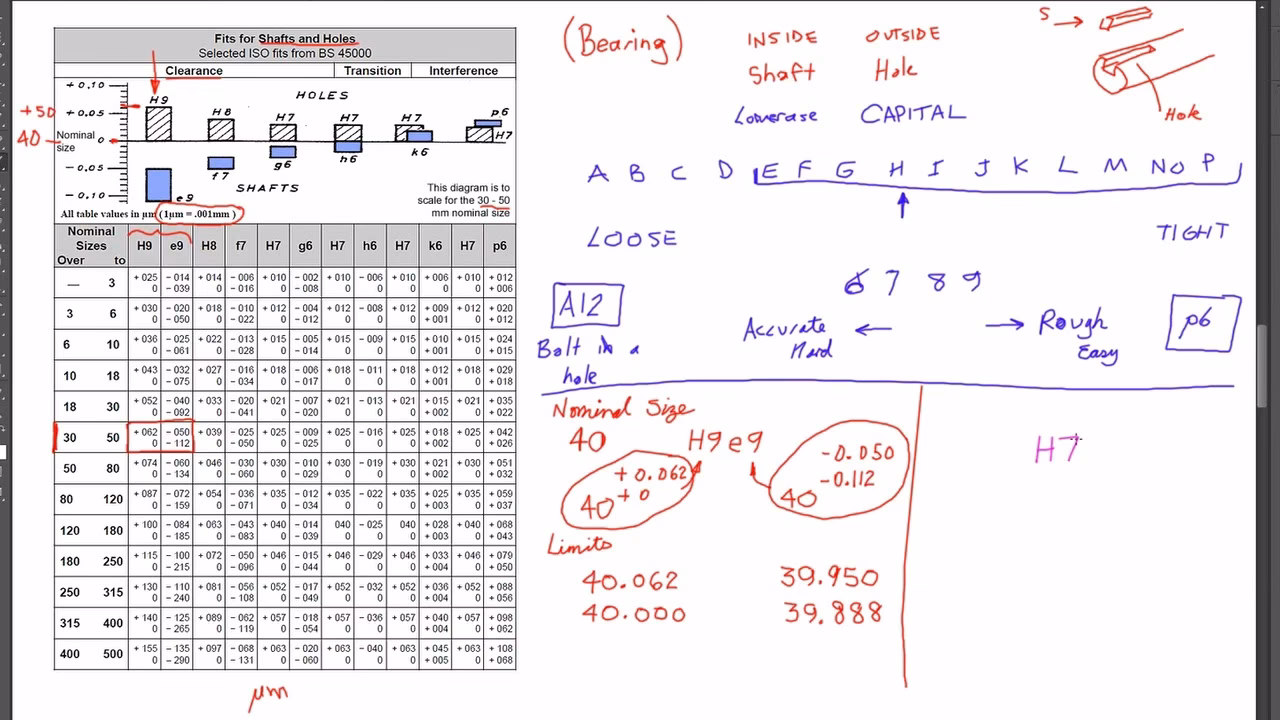 Fits for Shafts and Holes
Selected ISO fits from BS 45000
Clearance Transition Interference
+ 0.10
+ 0.05
Nominal size 0
− 0.05
− 0.10
HOLES
H9 H8 H7 H7 H7 p6
H7
h6 k6
g6
f7
e9
SHAFTS
+50
40
This diagram is to
scale for the 30 - 50
mm nominal size
All table values in µm ( 1µm = .001mm )
Nominal Sizes Over to H9 e9 H8 f7 H7 g6 H7 h6 H7 k6 H7 p6
— 3 + 025 − 014 + 014 − 006 + 010 − 002 + 010 − 006 + 010 + 006 + 010 + 012
0 − 039 0 − 016 0 − 008 0 0 0 0 0 + 006
3 6 + 030 − 020 + 018 − 010 + 012 − 004 + 012 − 008 + 012 + 009 + 012 + 020
0 − 050 0 − 022 0 − 012 0 0 0 + 001 0 + 012
6 10 + 036 − 025 + 022 − 013 + 015 − 005 + 015 − 009 + 015 + 010 + 015 + 024
0 − 061 0 − 028 0 − 014 0 0 0 + 001 0 + 015
10 18 + 043 − 032 + 027 − 016 + 018 − 006 + 018 − 011 + 018 + 012 + 018 + 029
0 − 075 0 − 034 0 − 017 0 0 0 + 001 0 + 018
18 30 + 052 − 040 + 033 − 020 + 021 − 007 + 021 − 013 + 021 + 015 + 021 + 035
0 − 092 0 − 041 0 − 020 0 0 0 + 002 0 + 022
30 50 + 062 − 050 + 039 − 025 + 025 − 009 + 025 − 016 + 025 + 018 + 025 + 042
0 − 112 0 − 050 0 − 025 0 0 0 + 002 0 + 026
50 80 + 074 − 060 + 046 − 030 + 030 − 010 + 030 − 019 + 030 + 021 + 030 + 051
0 − 134 0 − 060 0 − 029 0 0 0 + 002 0 + 032
80 120 + 087 − 072 + 054 − 036 + 035 − 012 + 035 − 022 + 035 + 025 + 035 + 059
0 − 159 0 − 071 0 − 034 0 0 0 + 003 0 + 037
120 180 + 100 − 084 + 063 − 043 + 040 − 014 040 − 025 040 + 028 + 040 + 068
0 − 185 0 − 083 0 − 039 0 0 0 + 003 0 + 043
180 250 + 115 − 100 + 072 − 050 + 046 − 015 + 046 − 029 + 046 + 033 + 046 + 079
0 − 215 0 − 096 0 − 044 0 0 0 + 004 0 + 050
250 315 + 130 − 110 + 081 − 056 + 052 − 017 + 052 − 032 + 052 + 036 + 052 + 088
0 − 240 0 − 108 0 − 049 0 0 0 + 004 0 + 056
315 400 + 140 − 125 + 089 − 062 + 057 − 018 + 057 − 036 + 057 + 040 + 057 + 098
0 − 265 0 − 119 0 − 054 0 0 0 + 004 0 + 062
400 500 + 155 − 135 + 097 − 068 + 063 − 020 + 063 − 040 + 063 + 045 + 063 + 108
0 − 290 0 − 131 0 − 060 0 0 0 + 005 0 + 068
µm
(Bearing)
INSIDE OUTSIDE
Shaft Hole
Lowerase CAPITAL
S
Hole
A B C D E F G H I J K L M N O P
LOOSE TIGHT
6 7 8 9
A12
Bolt in a
hole
Accurate
Hard
Rough
Easy
p6
Nominal Size
40 H9 e9
40 +0.062
+0
40 -0.050
-0.112
Limits
40.062 39.950
40.000 39.888
H7